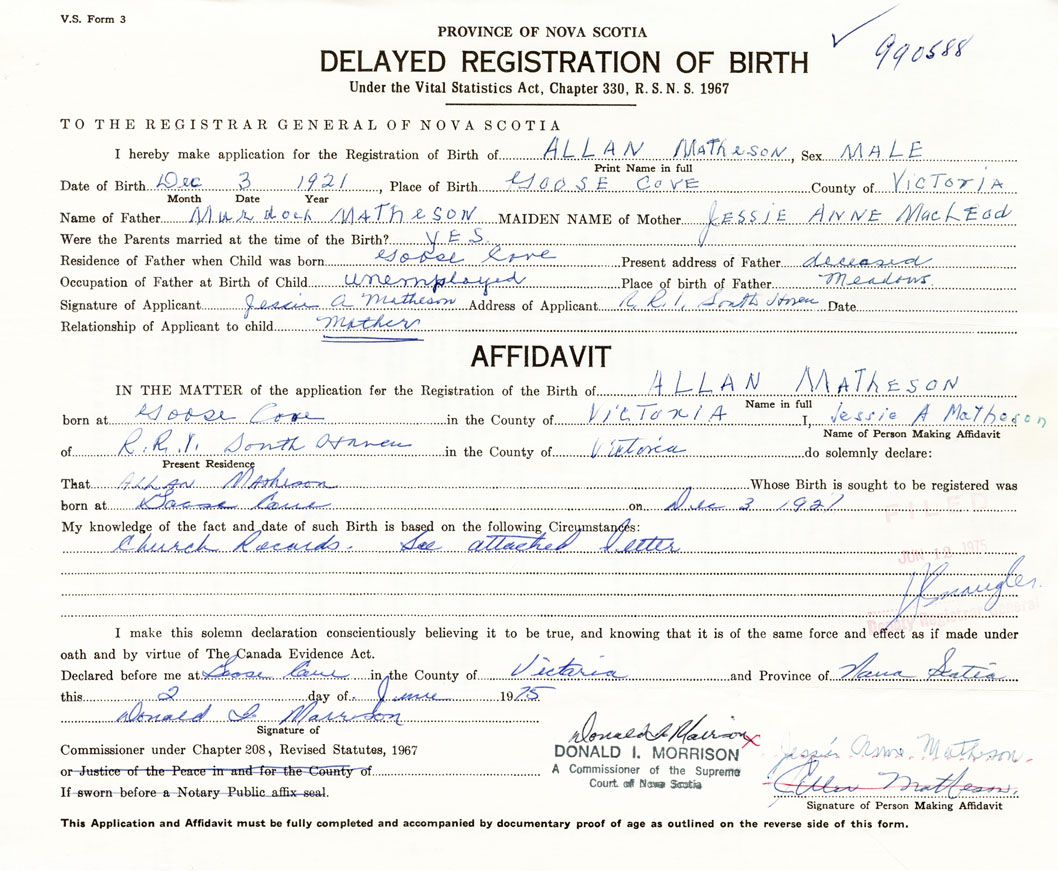 V.S. Form 3
PROVINCE OF NOVA SCOTIA
990588
DELAYED REGISTRATION OF BIRTH
Under the Vital Statistics Act, Chapter 330, R. S. N. S. 1967
TO THE REGISTRAR GENERAL OF NOVA SCOTIA
I hereby make application for the Registration of Birth of ALLAN Matheson, Sex MALE
Print Name in full
Date of Birth Dec 3 1921, Place of Birth GOOSE COVE County of VICTORIA
Month Date Year
Name of Father Murdoch MATHESON MAIDEN NAME of Mother JESSIE ANNE MacLEod
Were the Parents married at the time of the Birth? YES
Residence of Father when Child was born Goose Cove Present address of Father deceased
Occupation of Father at Birth of Child unemployed Place of birth of Father Meadows
Signature of Applicant Jessie A Matheson Address of Applicant R.R.1, South Haven Date
Relationship of Applicant to child Mother
AFFIDAVIT
IN THE MATTER of the application for the Registration of the Birth of ALLAN MATHESON
Name in full
born at Goose Cove in the County of VICTORIA I, Jessie A Matheson
Name of Person Making Affidavit
of R.R.1. South Haven in the County of Victoria do solemnly declare:
Present Residence
That Allan Matheson Whose Birth is sought to be registered was
born at Goose Cove on Dec 3 1921
FILED
My knowledge of the fact and date of such Birth is based on the following Circumstances:
Church Records. See attached letter
JUN 12 1975
Deputy Registrar General
I make this solemn declaration conscientiously believing it to be true, and knowing that it is of the same force and effect as if made under
oath and by virtue of The Canada Evidence Act.
Declared before me at Goose Cove in the County of Victoria and Province of Nova Scotia
this 2 day of June 1975
Donald I. Morrison
Signature of
Commissioner under Chapter 208, Revised Statutes, 1967
or Justice of the Peace in and for the County of
If sworn before a Notary Public affix seal.
Donald I Morrison
DONALD I. MORRISON
A Commissioner of the Supreme
Court of Nova Scotia
Jessie Anne Matheson
Allan Matheson
Signature of Person Making Affidavit
This Application and Affidavit must be fully completed and accompanied by documentary proof of age as outlined on the reverse side of this form.